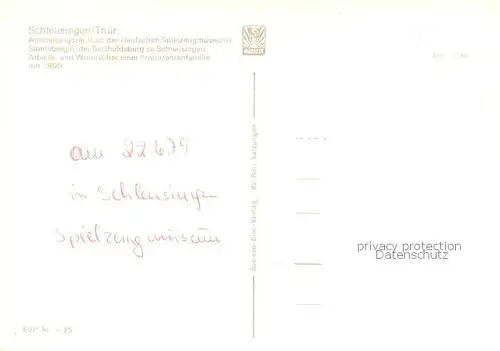 Schleusingen/Thür.
Ausstellungszentrum des Deutschen Spielzeugmuseums
Sonneberg in der Bertholdsburg zu Schleusingen
Arbeits- und Wohnstätte einer Produzentenfamilie
um 1900
am 22.6.79
in Schleusingen
Spielzeugmuseum
EVP M -,25
Auslese-Bild-Verlag, Bad Salzungen
privacy protection
Datenschutz